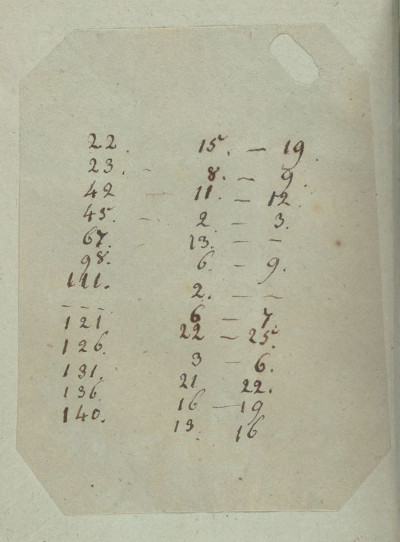 22. 15. – 19.
23. – 8. – 9.
42 – 11. – 12.
45. – 2 – 3.
67. 13. – –
98. 6 – 9.
111. 2. – –
– – – 6 – 7.
121. 22 – 25.
126. 3 – 6.
131. 21 22.
136. 16 – 19
140. 13. 16